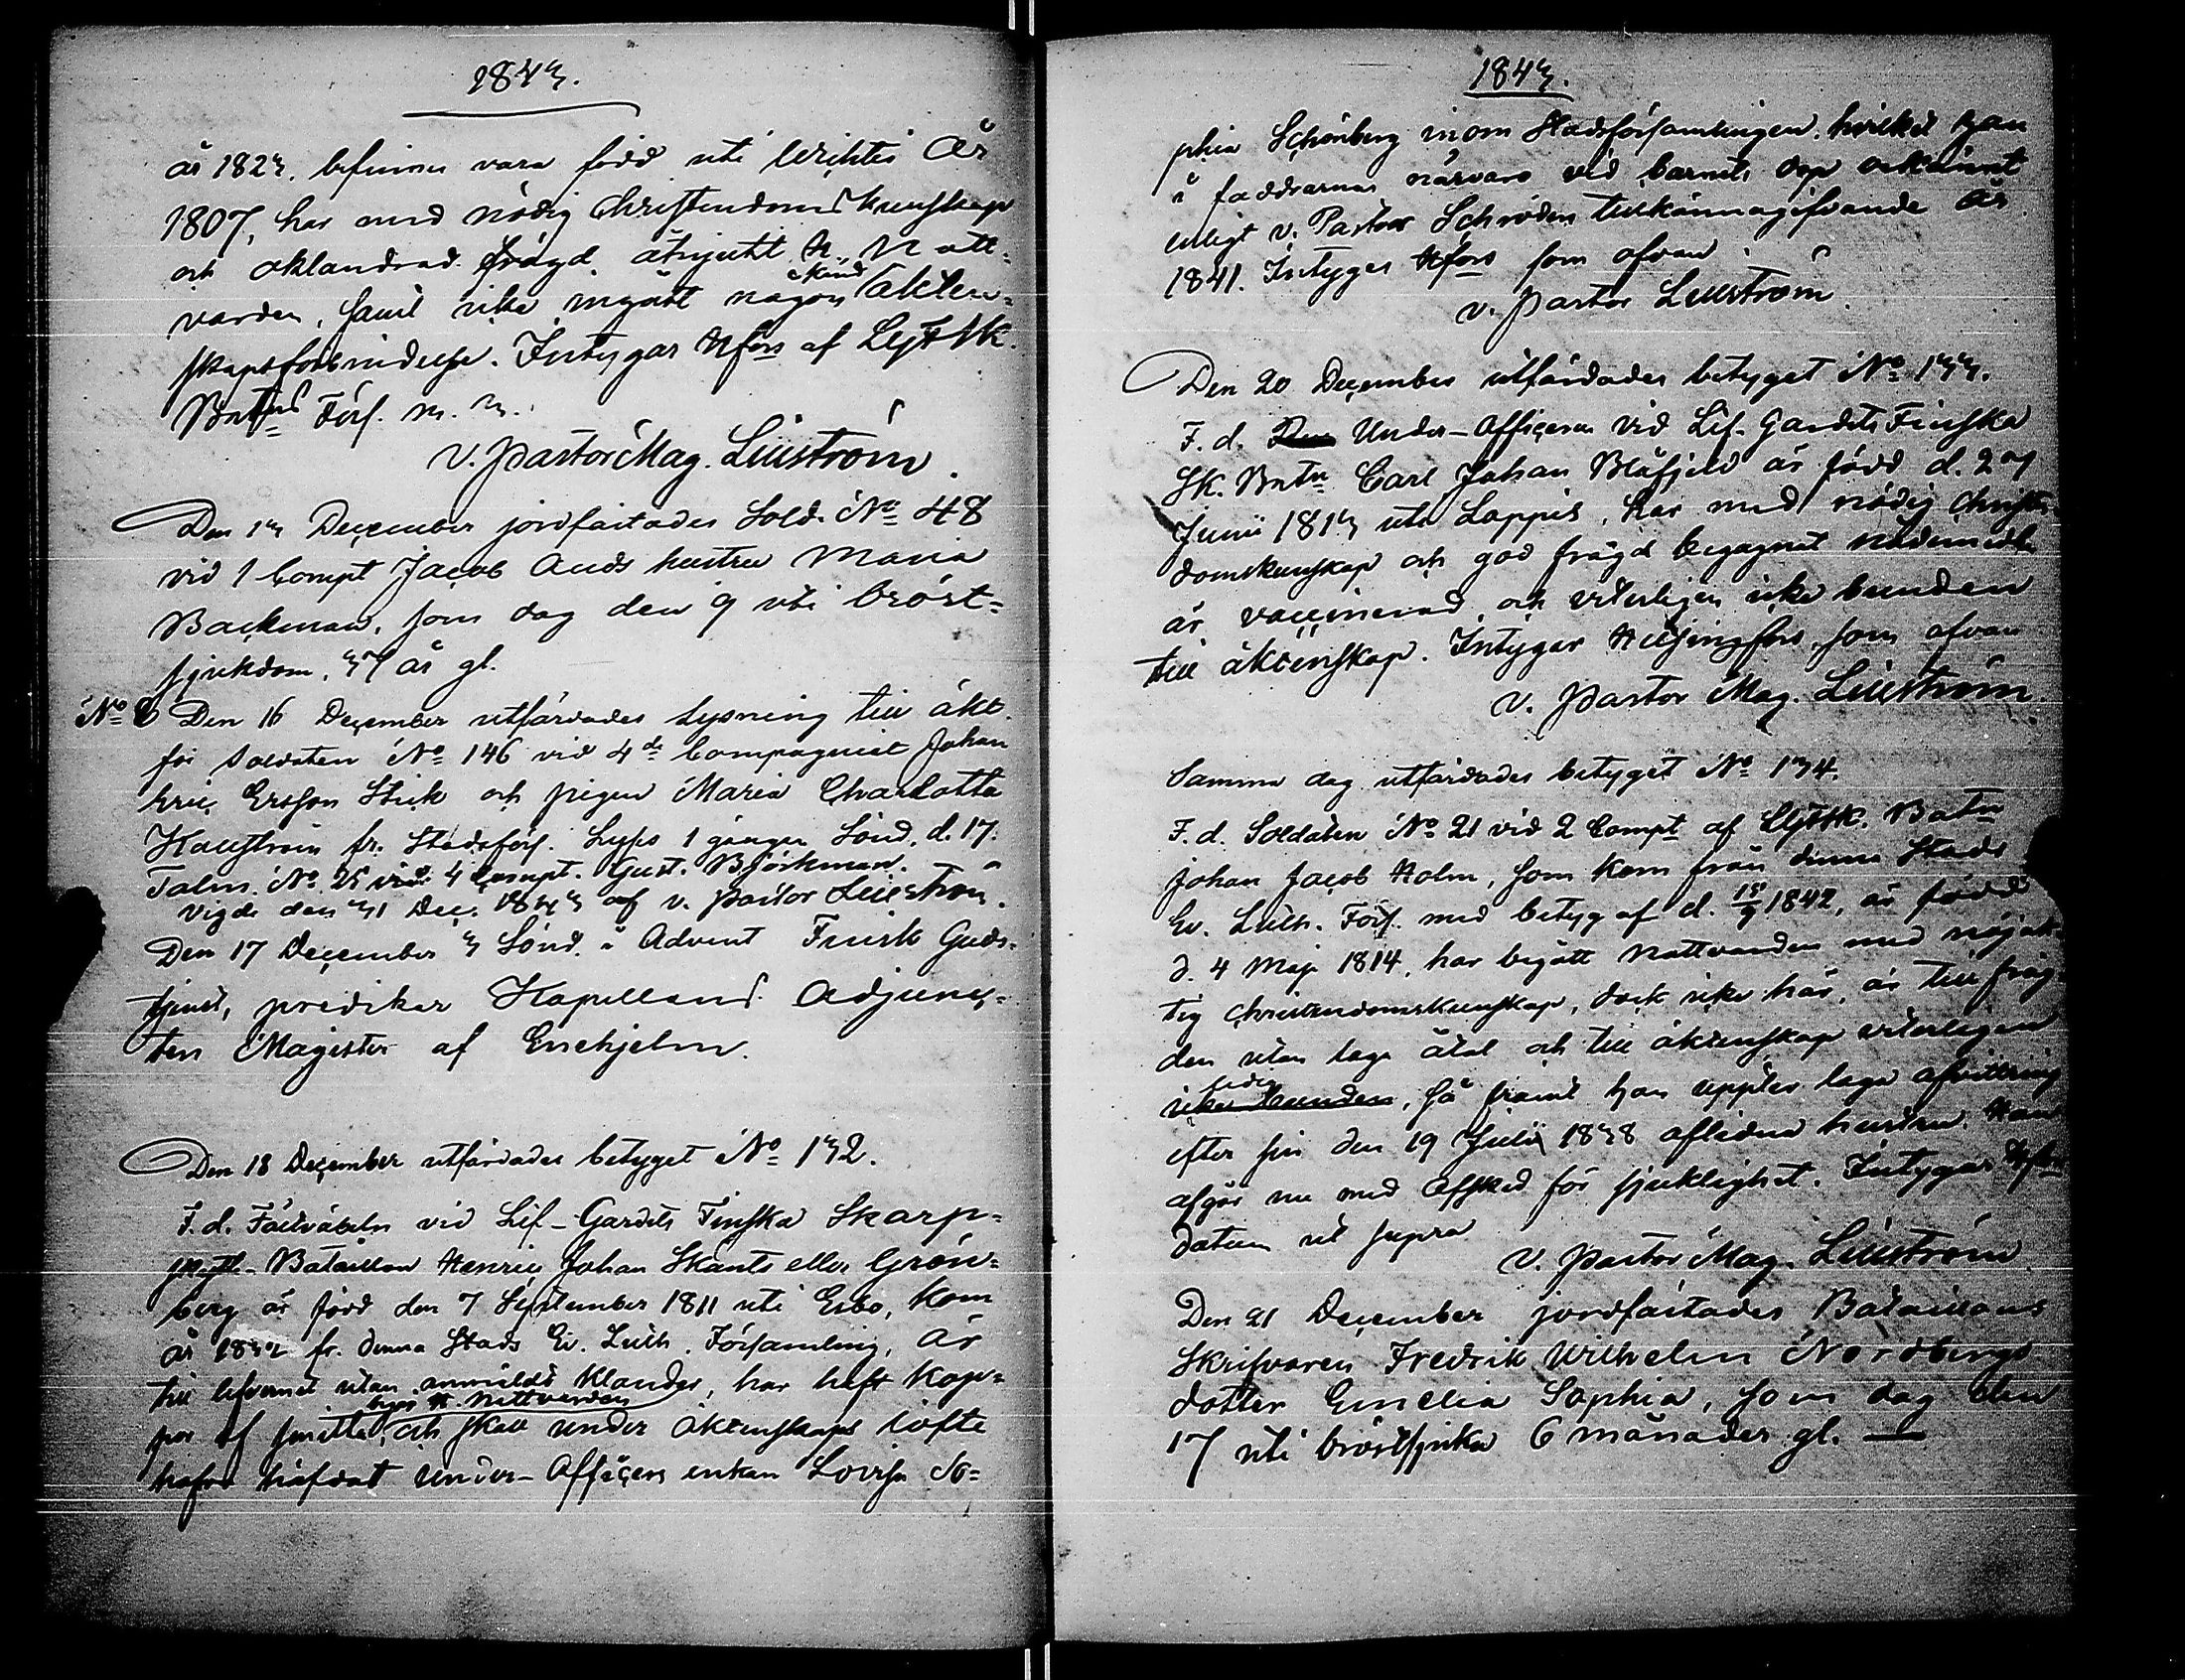 1843.
år 1823. befinnes vara född uti Wichtis År
1807, har med nödig Christendoms kunskap
och oklandrad frägd åtnjutit H. H. natt-
varden, samt icke ingått någon känd äkten-
skapsförbindelse. Intygar Hfors af LgFSk.
Batns Förs. m. m.
V. Pastor Mag. Lillström.
Den 13 December jordfästades Sold. No 48
vid 1 Compt Jacob Auds hustru Maria
Backman, som dog den 9 uti bröst-
sjukdom, 37 år gl.
No 8 Den 16 December utfärdades Lysning till äkt.
för Soldaten No 146 vid 4de Compagniet Johan
Eric Ersson Stick och pigan Maria Charlotta
Hallström fr. Stadsförs. Lyses 1 gången Sönd. d. 17.
Talm. No 25 vid 4 Compt. Gust. Björkman.
Vigde den 31 Dec. 1843 af v. Pastor Lillström.
Den 17 December 3 Sönd. i Advent Finsk Guds-
tjenst, predikar Kapellans Adjunc-
ten Magister af Enehjelm.
Den 18 December utfärdades betyget No 132.
F.d. Fältväbeln vid Lif-Gardets Finska Skarp-
skytte-Bataillon Henric Johan Skants eller Grön-
berg är född den 7 September 1811 uti Esbo, kom
år 1832 fr. denna Stads Ev. Luth. Församling, är
till lefvernet utan anmäldt klander, har haft kop-
beg. H. Nattvarden
por af smitta, och skall under äktenskaps löfte
hafva häfdat Under-Officers enkan Lovisa So-
1843.
phia Schönberg inom Stadsförsamlingen, hvilket han
i faddrarnas närvaro vid barnets dop erkännt
enligt v. Pastor Schröders tillkännagifvande År
1841. Intygas Hfors som ofvan
v. Pastor Lillström.
Den 20 December utfärdades betyget No 133.
F.d. Under-Officeren vid Lif-Gardets Finska
Sk. Batn Carl Johan Blåfjeld är född d. 27
Junii 1813 uti Lappis, har med nödig christen-
domskunskap och god frägd begagnat nådemedlen
är vaccinerad, och veterligen icke bunden
till äktenskap. Intygar Helsingfors som ofvan
V. Pastor Mag. Lillström.
Samma dag utfärdades betyget No 134.
F.d. Soldaten No 21 vid 2 Compt af LgFSk. Batn
Johan Jacob Holm, som kom från denna Stads
Ev. Luth. Förs. med betyg af d. 15/9 1842, är född
d. 4 Maji 1814, har begått Nattvarden med nöjak-
tig Christendomskunskap, dock icke här, är till fräg-
den utan laga åtal och till äktenskap veterligen
ledig
icke bunden, så framt han upptar laga afvittring
efter sin den 19 Julii 1838 aflidna hustru. Han
afgår nu med Afsked för sjuklighet. Intygar Hfors
datum ut supra
V. Pastor Mag. Lillström
Den 21 December jordfästades Bataillons
Skrifvaren Fredrik Wilhelm Nordbergs
dotter Emelia Sophia, som dog den
17 uti bröstsjuka 6 månader gl. —